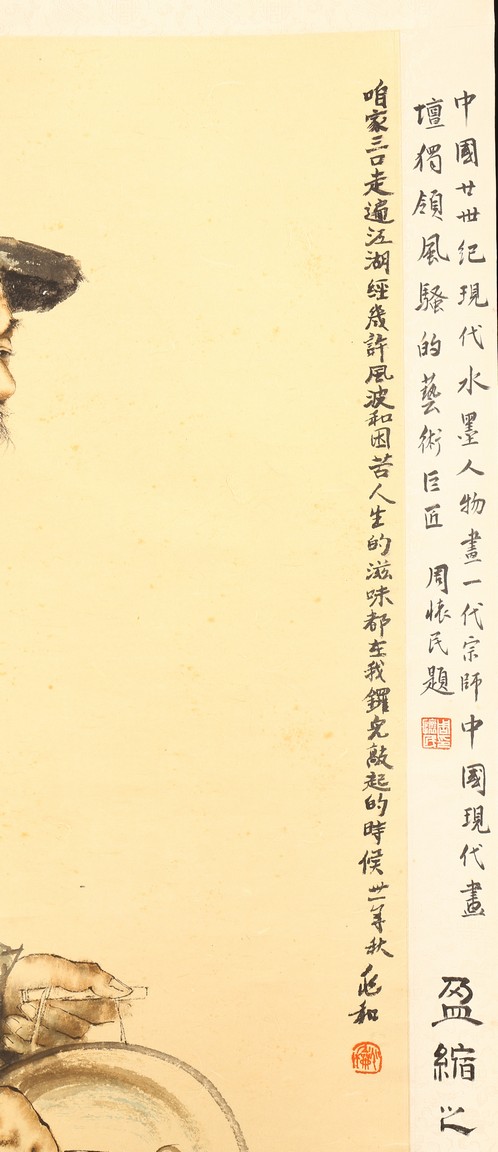 中國廿世紀現代水墨人物畫一代宗師中國現代畫
壇獨領風騷的藝術巨匠 周懷民題
盈縮之
咱家三口走遍江湖經幾許風波和困苦人生的滋味都在我鑼兒敲起的時候 卅一年秋 兆和